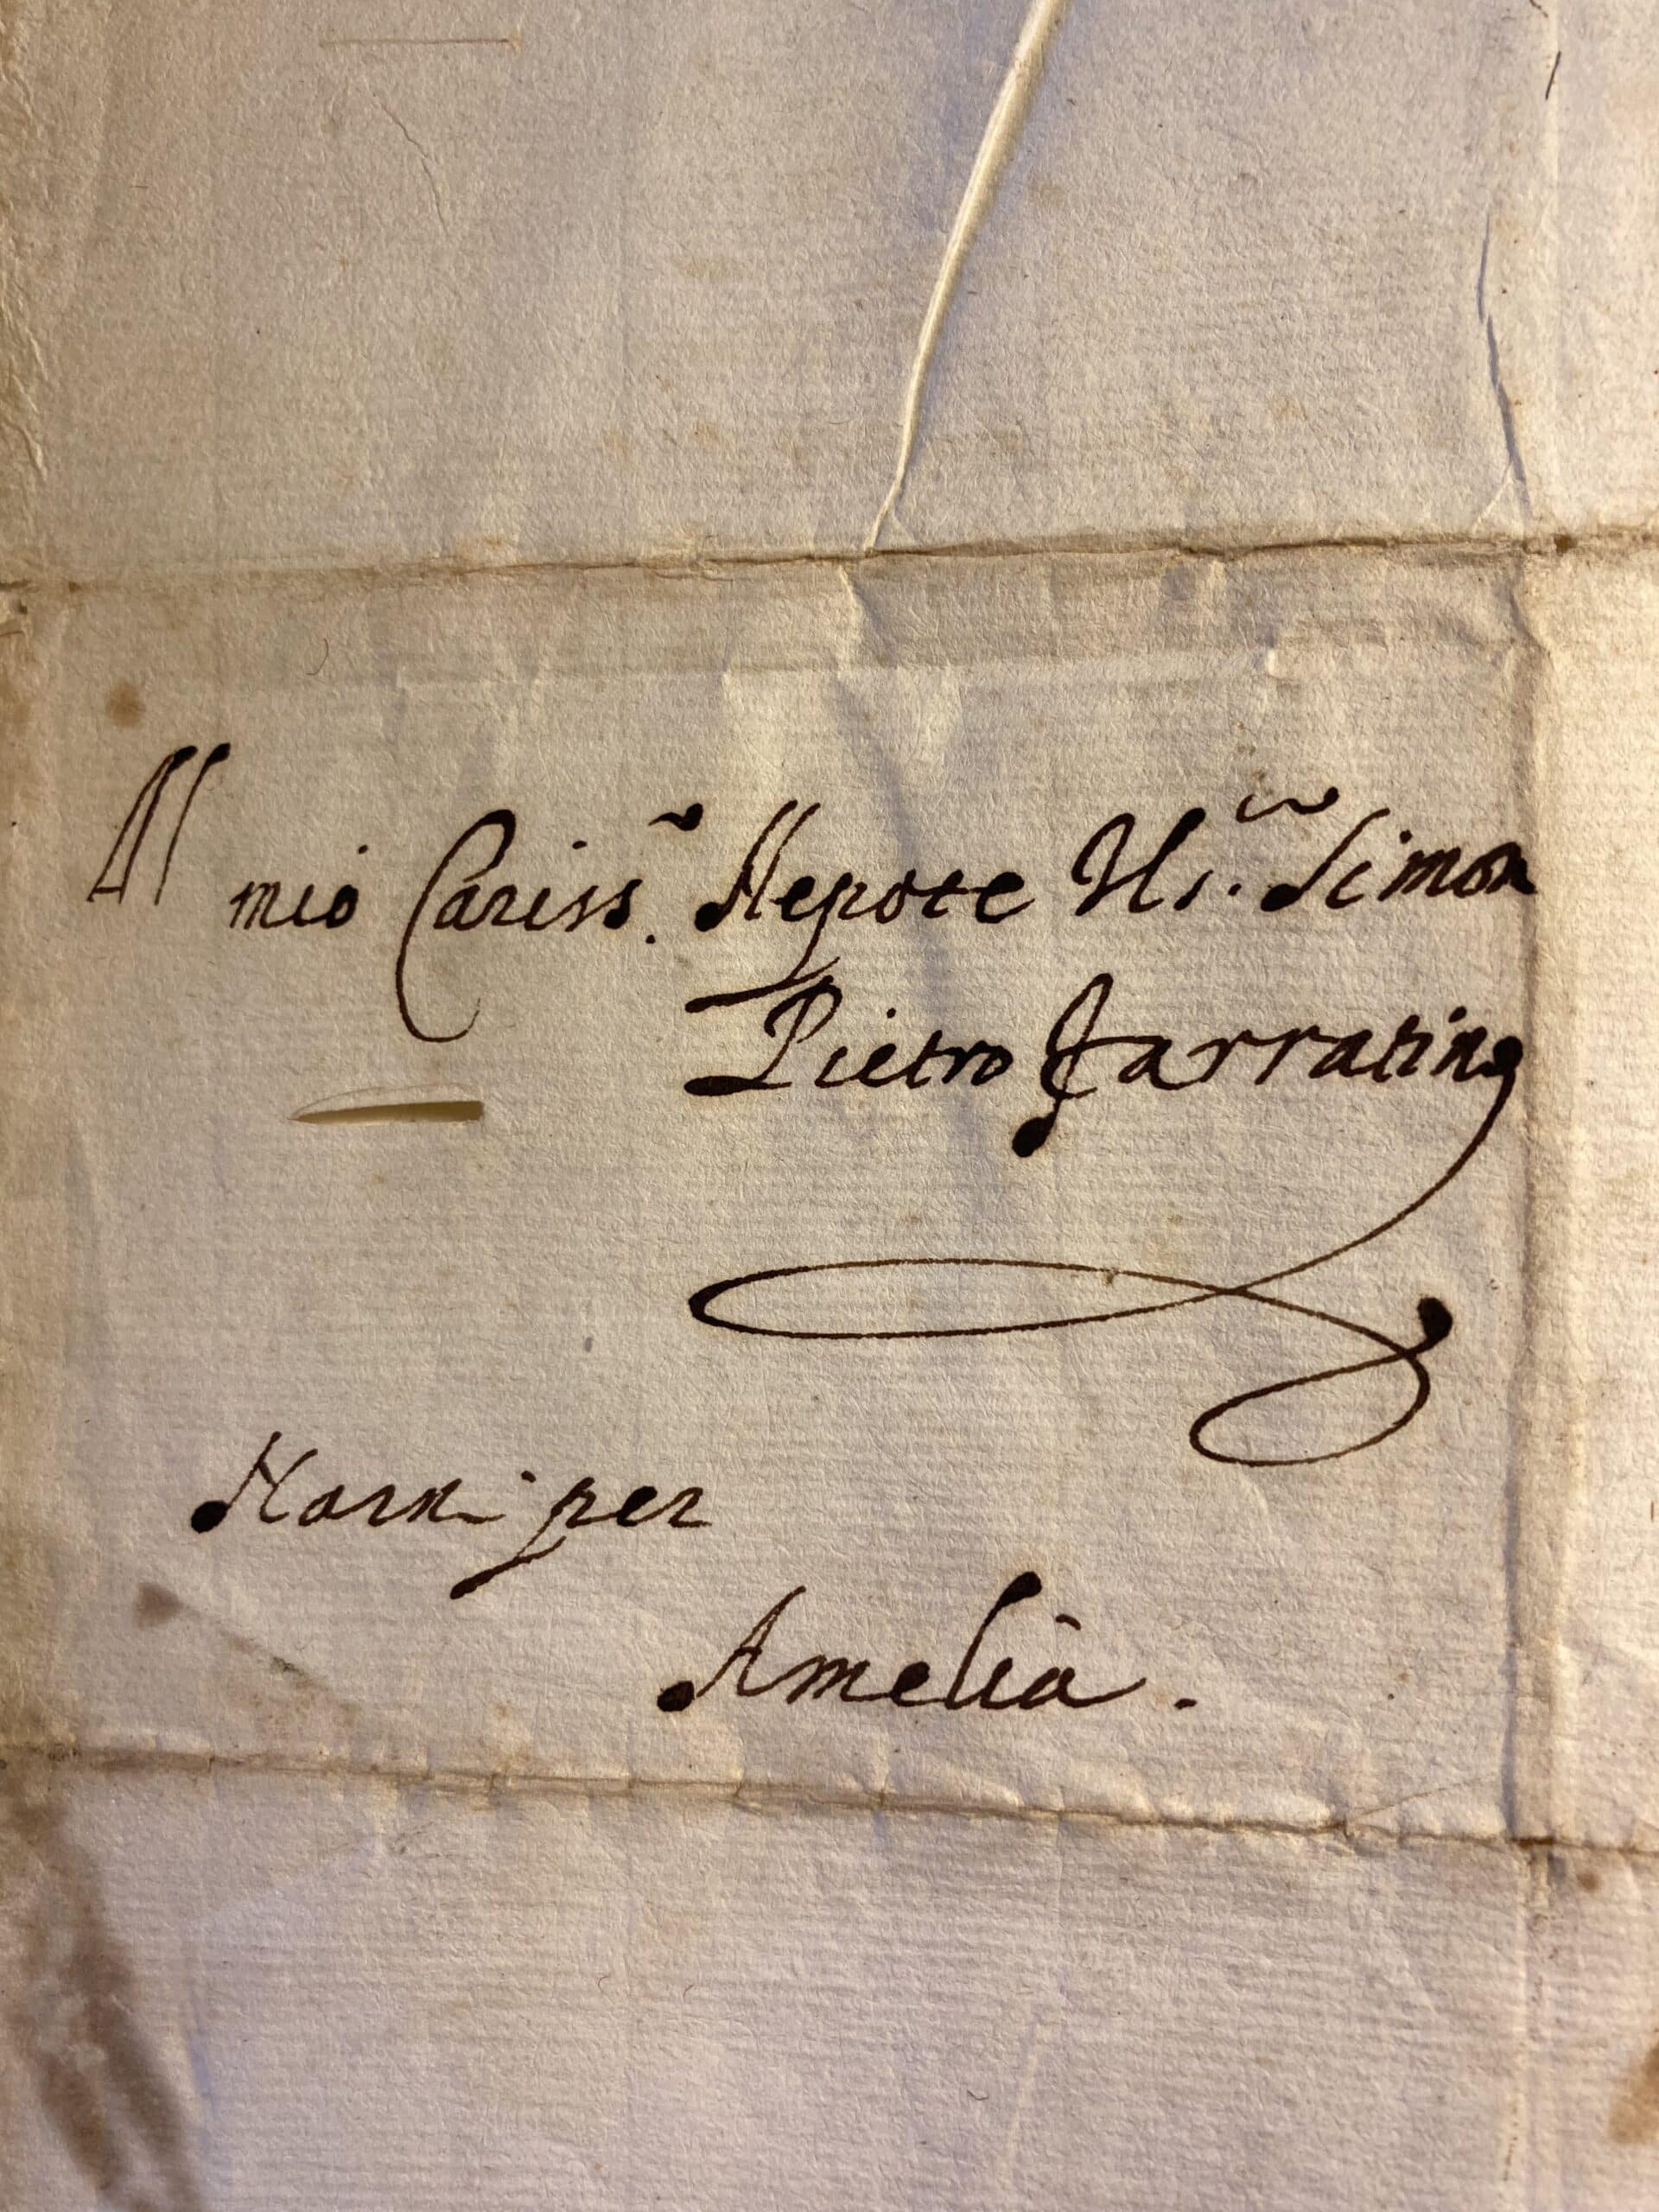 Al mio Cariss.º Nepote Il s.re Simon
Pietro Farratino
Narni per
Amelia.